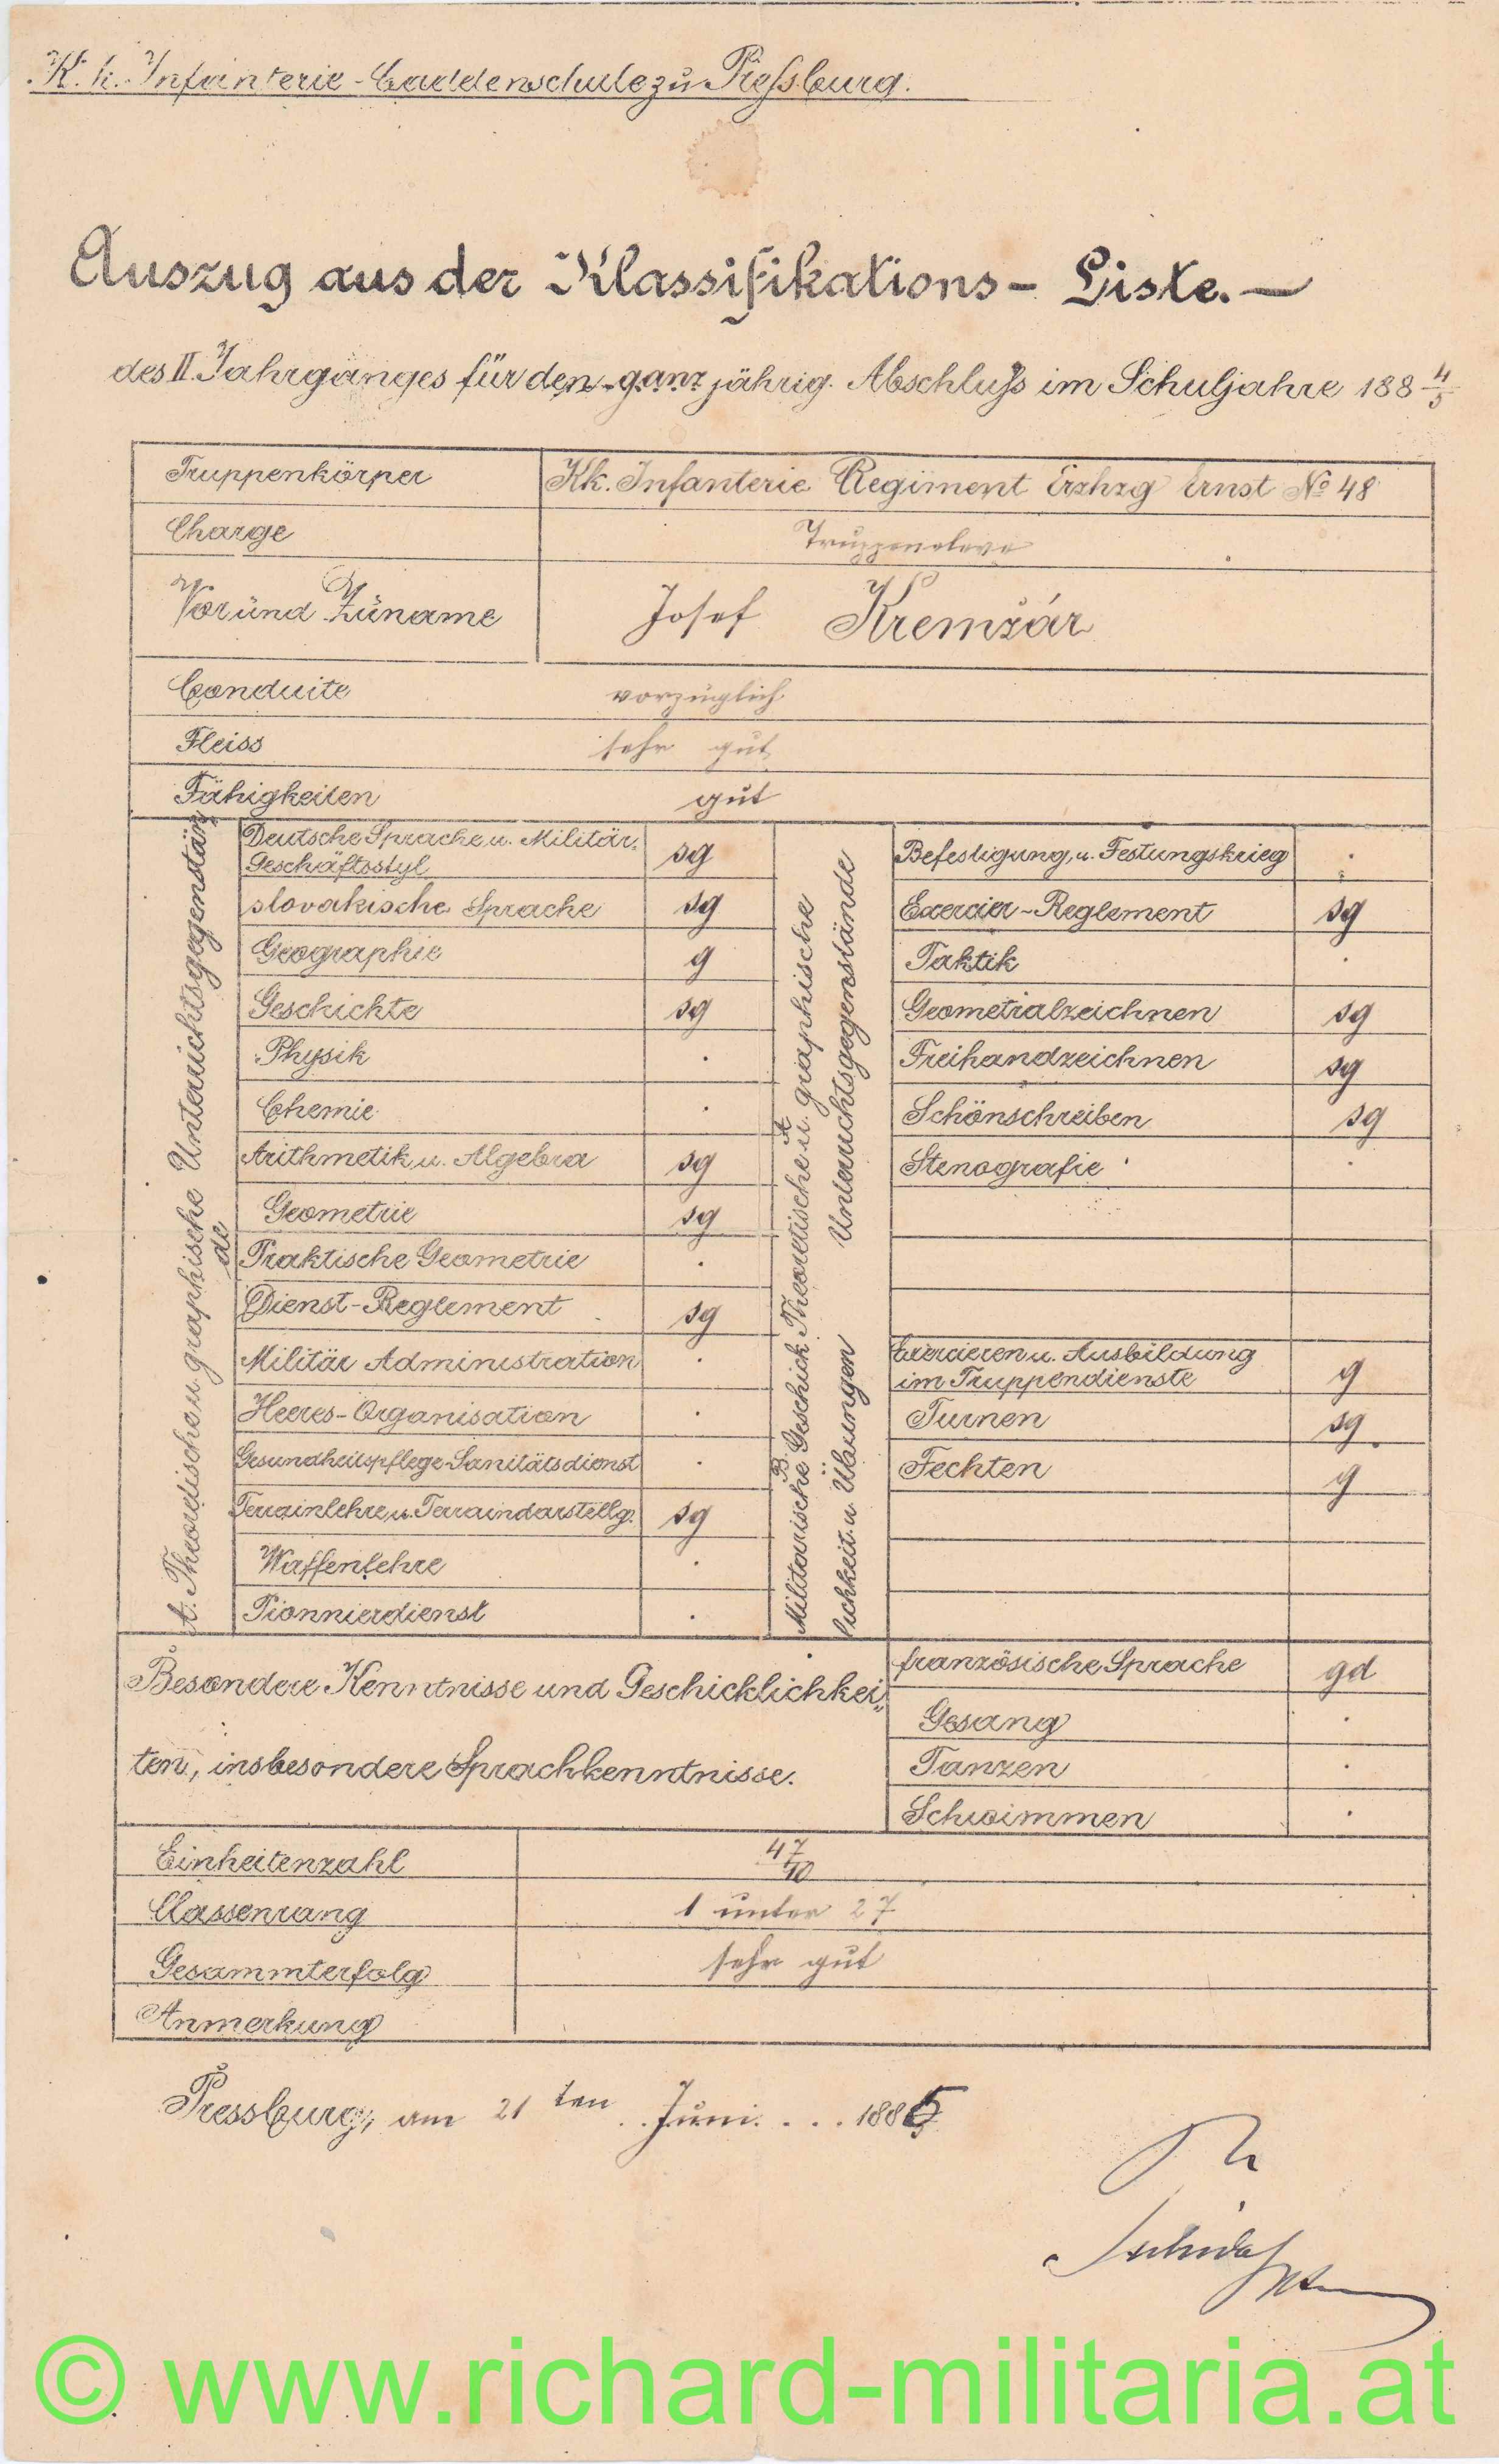 K. k. Infanterie-Cadetenschule zu Preßburg.
Auszug aus der Klassifikations- Liste. —
des II. Jahrganges für den ganz jährig. Abschluß im Schuljahre 188 4/5
Truppenkörper Kk. Infanterie Regiment Erzhzg Ernst No 48
Charge Truppeneleve
Vor und Zuname Josef Kremžár
Conduite vorzüglich
Fleiss sehr gut
Fähigkeiten gut
A. Theoretische u. graphische Unterrichtsgegenstän
de
Deutsche Sprache u. Militär.
Geschäftsstyl sg
slovakische Sprache sg
Geographie g
Geschichte sg
Physik .
Chemie .
Arithmetik u. Algebra sg
Geometrie sg
Praktische Geometrie .
Dienst-Reglement sg
Militär Administration .
Heeres-Organisation .
Gesundheitspflege Sanitätsdienst .
Terrainlehre u. Terraindarstellg. sg
Waffenlehre .
Pionnierdienst .
A
Theoretische u. graphische
Unterrichtsgegenstände
Befestigung u. Festungskrieg .
Exercier-Reglement sg
Taktik .
Geometralzeichnen sg
Freihandzeichnen sg
Schönschreiben sg
Stenografie .
B.
Militärische Geschick
lichkeit u. Übungen
Exercieren u. Ausbildung
im Truppendienste g
Turnen sg
Fechten g
Besondere Kenntnisse und Geschicklichkei„
ten, insbesondere Sprachkenntnisse.
französische Sprache gd
Gesang .
Tanzen .
Schwimmen .
Einheitenzahl 47/10
Classenrang 1 unter 27
Gesammterfolg sehr gut
Anmerkung
Pressburg, am 21ten Juni . . . 1885
© www.richard-militaria.at